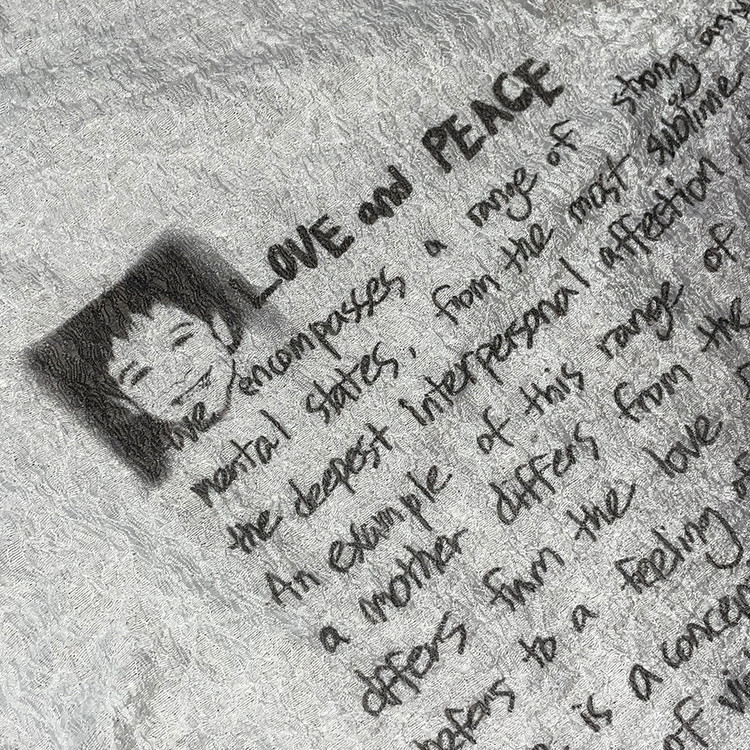 LOVE and PEACE
Love encompasses a range of strong and
mental states, from the most sublime
the deepest interpersonal affection
An example of this range of
a mother differs from the
differs from the love
refers to a feeling of
is a concept
of